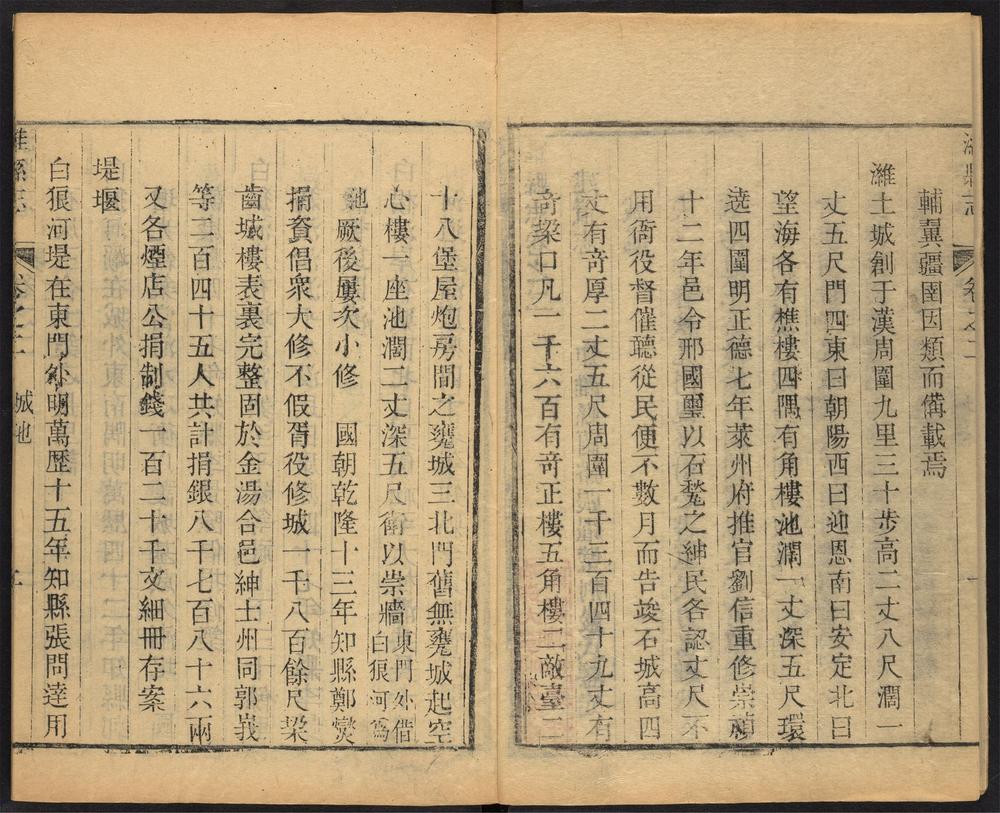 濰縣志
卷之二
輔翼疆圉因類而備載焉
濰土城創于漢周圍九里三十步高二丈八尺濶一
丈五尺門四東曰朝陽西曰迎恩南曰安定北曰
望海各有樵樓四隅有角樓池濶一丈深五尺環
遶四圍明正德七年萊州府推官劉信重修崇禎
十二年邑令邢國璽以石甃之紳民各認丈尺不
用衙役督催聽從民便不數月而告竣石城高四
丈有奇厚二丈五尺周圍一千三百四十九丈有
奇垜口凡一千六百有奇正樓五角樓二敵臺二
十八堡屋炮房間之甕城三北門舊無甕城起空
心樓一座池濶二丈深五尺衛以崇牆東門外借
白狼河為
池厥後屢次小修 國朝乾隆十三年知縣鄭燮
捐資倡衆大修不假胥役修城一千八百餘尺垜
齒城樓表裏完整固於金湯合邑紳士州同郭峩
等二百四十五人共計捐銀八千七百八十六兩
又各煙店公捐制錢一百二十千文細冊存案
堤堰
白狼河堤在東門外明萬歷十五年知縣張問達用
濰縣志
卷之二 城池